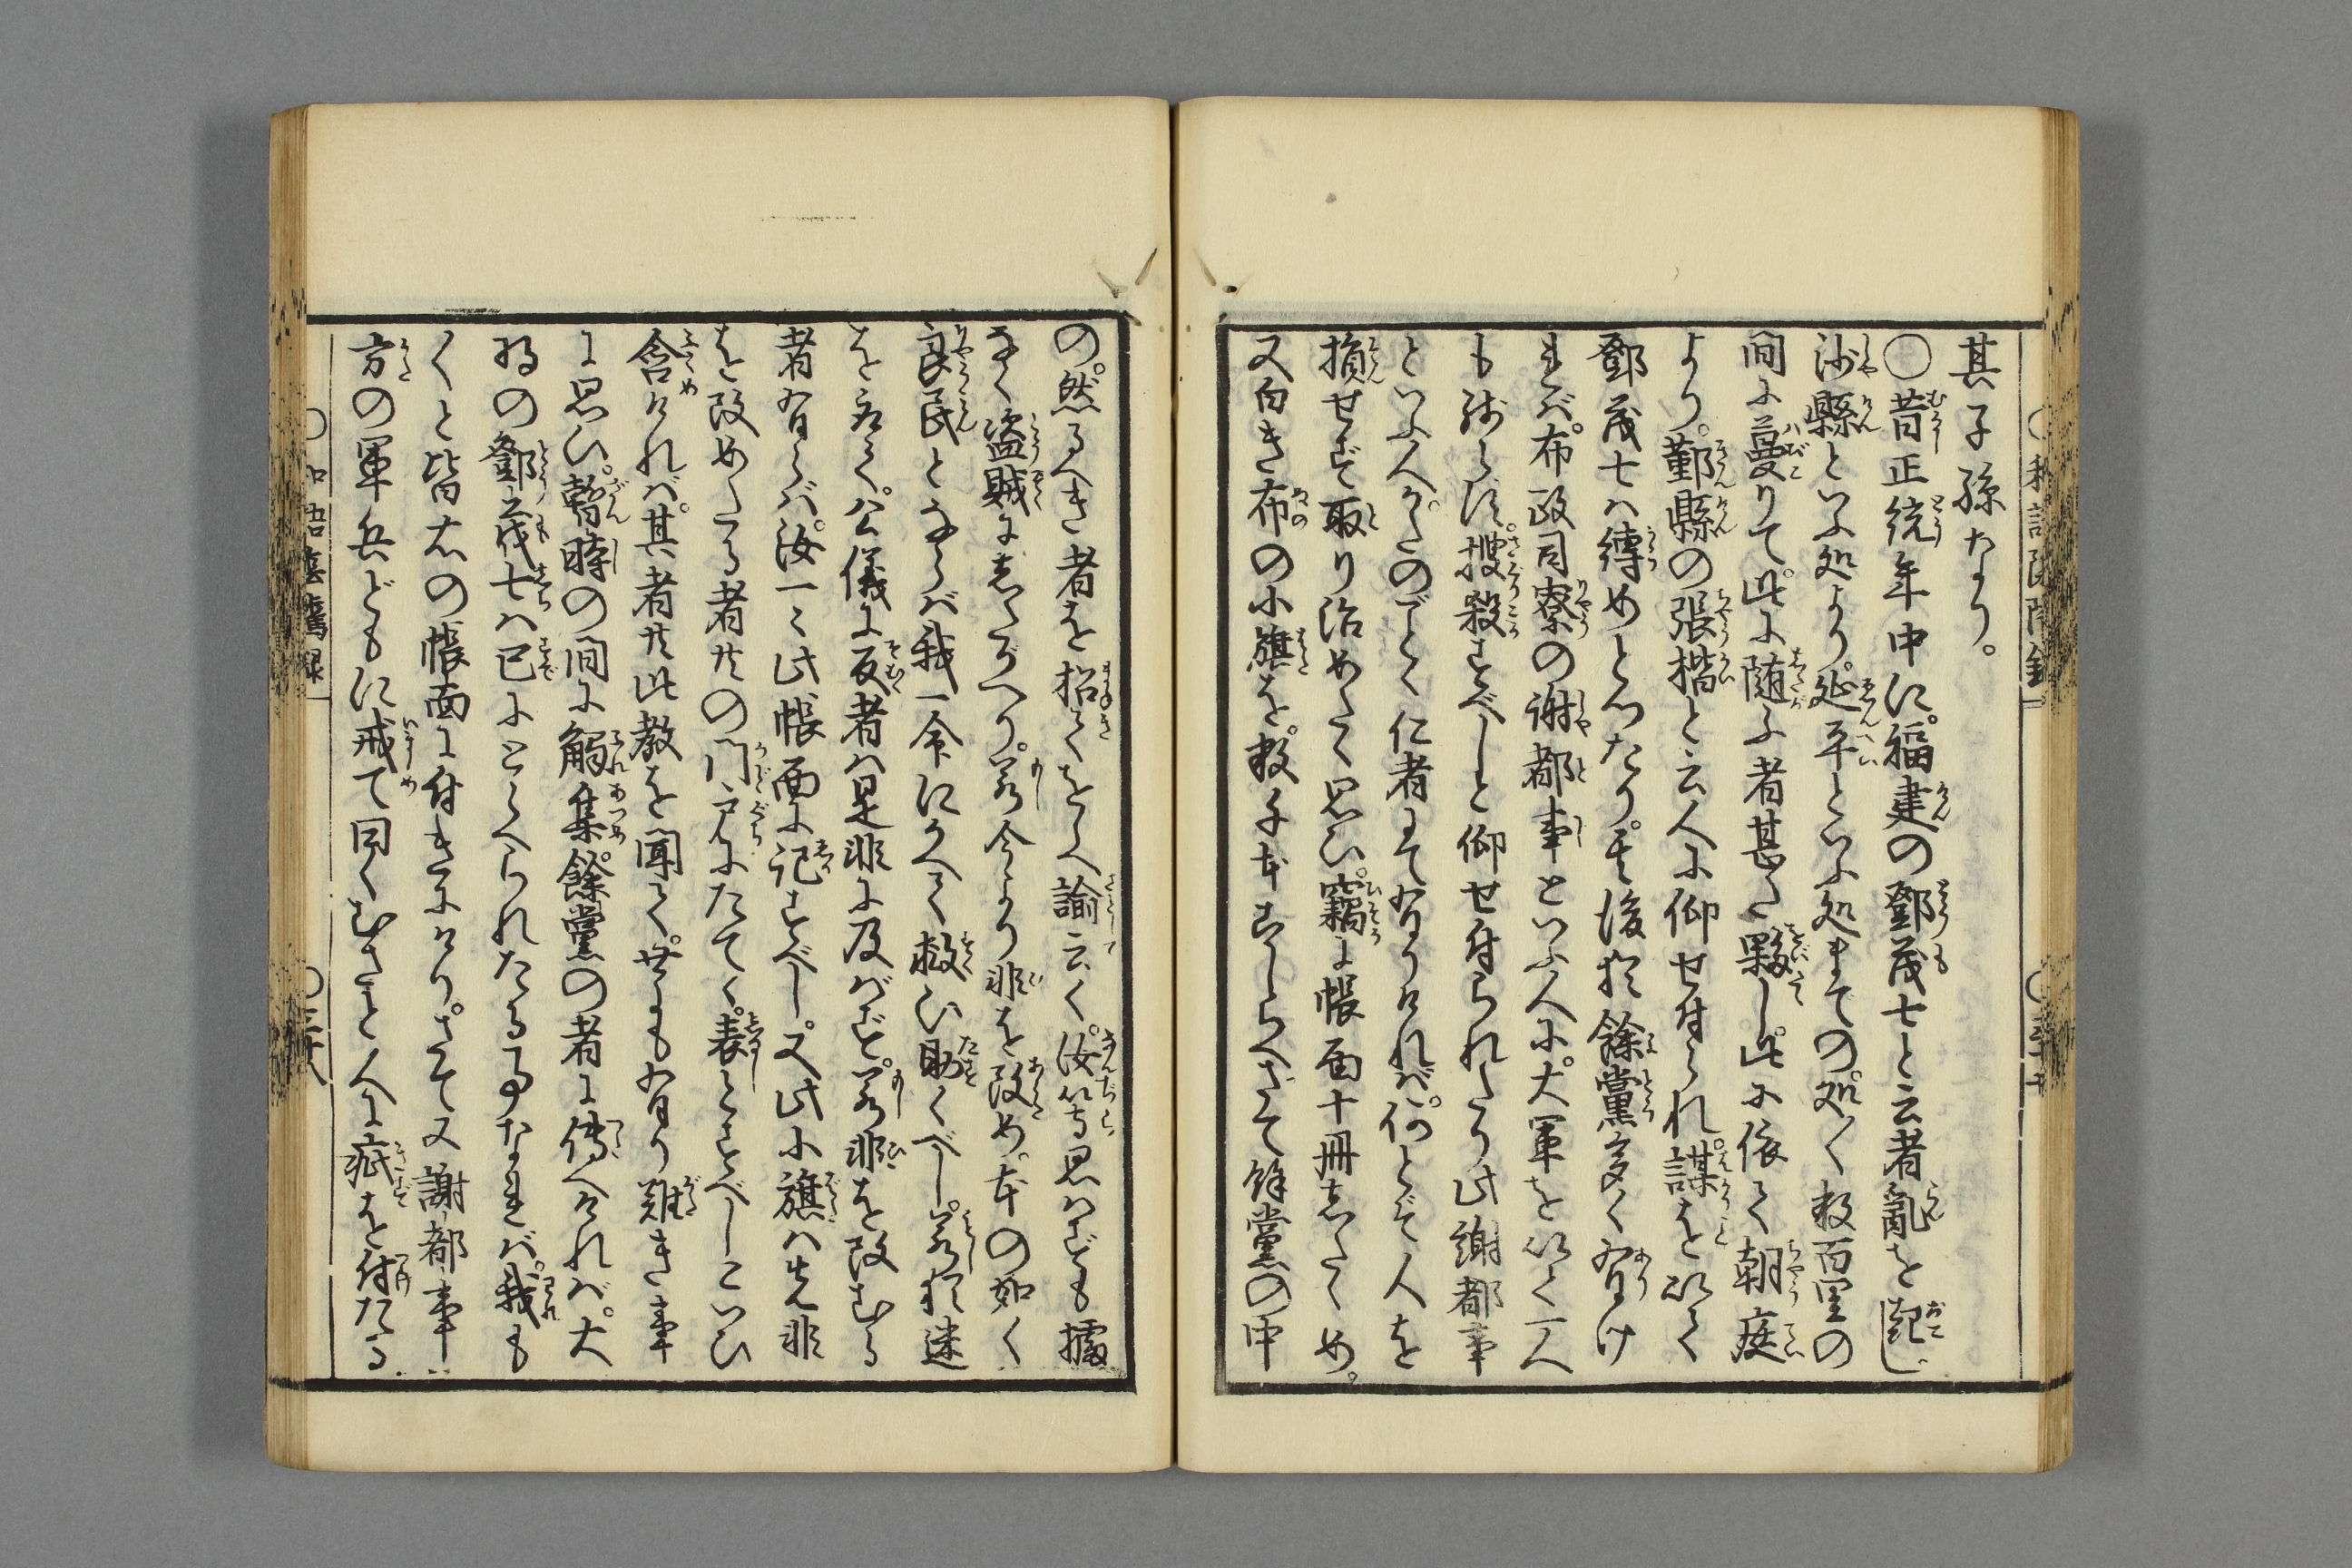 其子孫なり。
〇昔正統年中に。福建の鄧茂七と云者亂を起し
沙縣といふ処より。延平といふ処までの。処〱数百里の
間に蔓りて。此に随ふ者甚た夥し。此に依て朝庭
より。鄞縣の張楷と云人に仰せ付られ。謀を以て
鄧茂七ハ縛めとつたり。其後猶餘黨多く有け
れバ。布政司寮の謝都事といふ人に。大軍を以て一人
も残らず。捜殺すべしと仰せ付られたり此謝都事
といふ人が。たのごとく仁者にて有りけれバ。何とぞ人を
損せず取り治めたく思ひ。竊に帳面十冊したゝめ。
又白き布の小旗を。数千本こしらへさて餘黨の中
の。然るべき者を招てをしへ諭云く。汝等思ハずも擄
なく盗賊にしたがへり。若今より非を改め。本の如く
良民とならバ我一命にかへて救ひ助くべし。若猶迷
を取て。公儀に反者ハ是非に及バず。若非を改むる
者有らバ。汝一〻此帳面に記すべし。又此小旗ハ先非
を改めたる者共の門戸にたてて。表とすべしといひ
含けれバ。其者共此教を聞て。世にも有り難き事
に思ひ。暫時の間に觸集餘黨の者に傳へけれバ。大
将の鄧茂七ハ已にとらへられたる事なれバ。我も
〱と皆右の帳面に付きにけり。さて又謝都事
方の軍兵どもに戒て曰くむさと人に疵を付たる